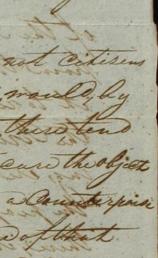 not citizens
would, by
there tend
cure the object
a counterpoise
d of that